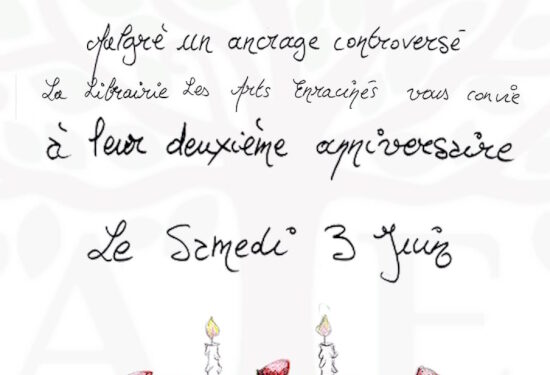 Malgré un ancrage controversé
La Librairie Les Arts Enracinés vous convie
à leur deuxième anniversaire
Le Samedi 3 Juin